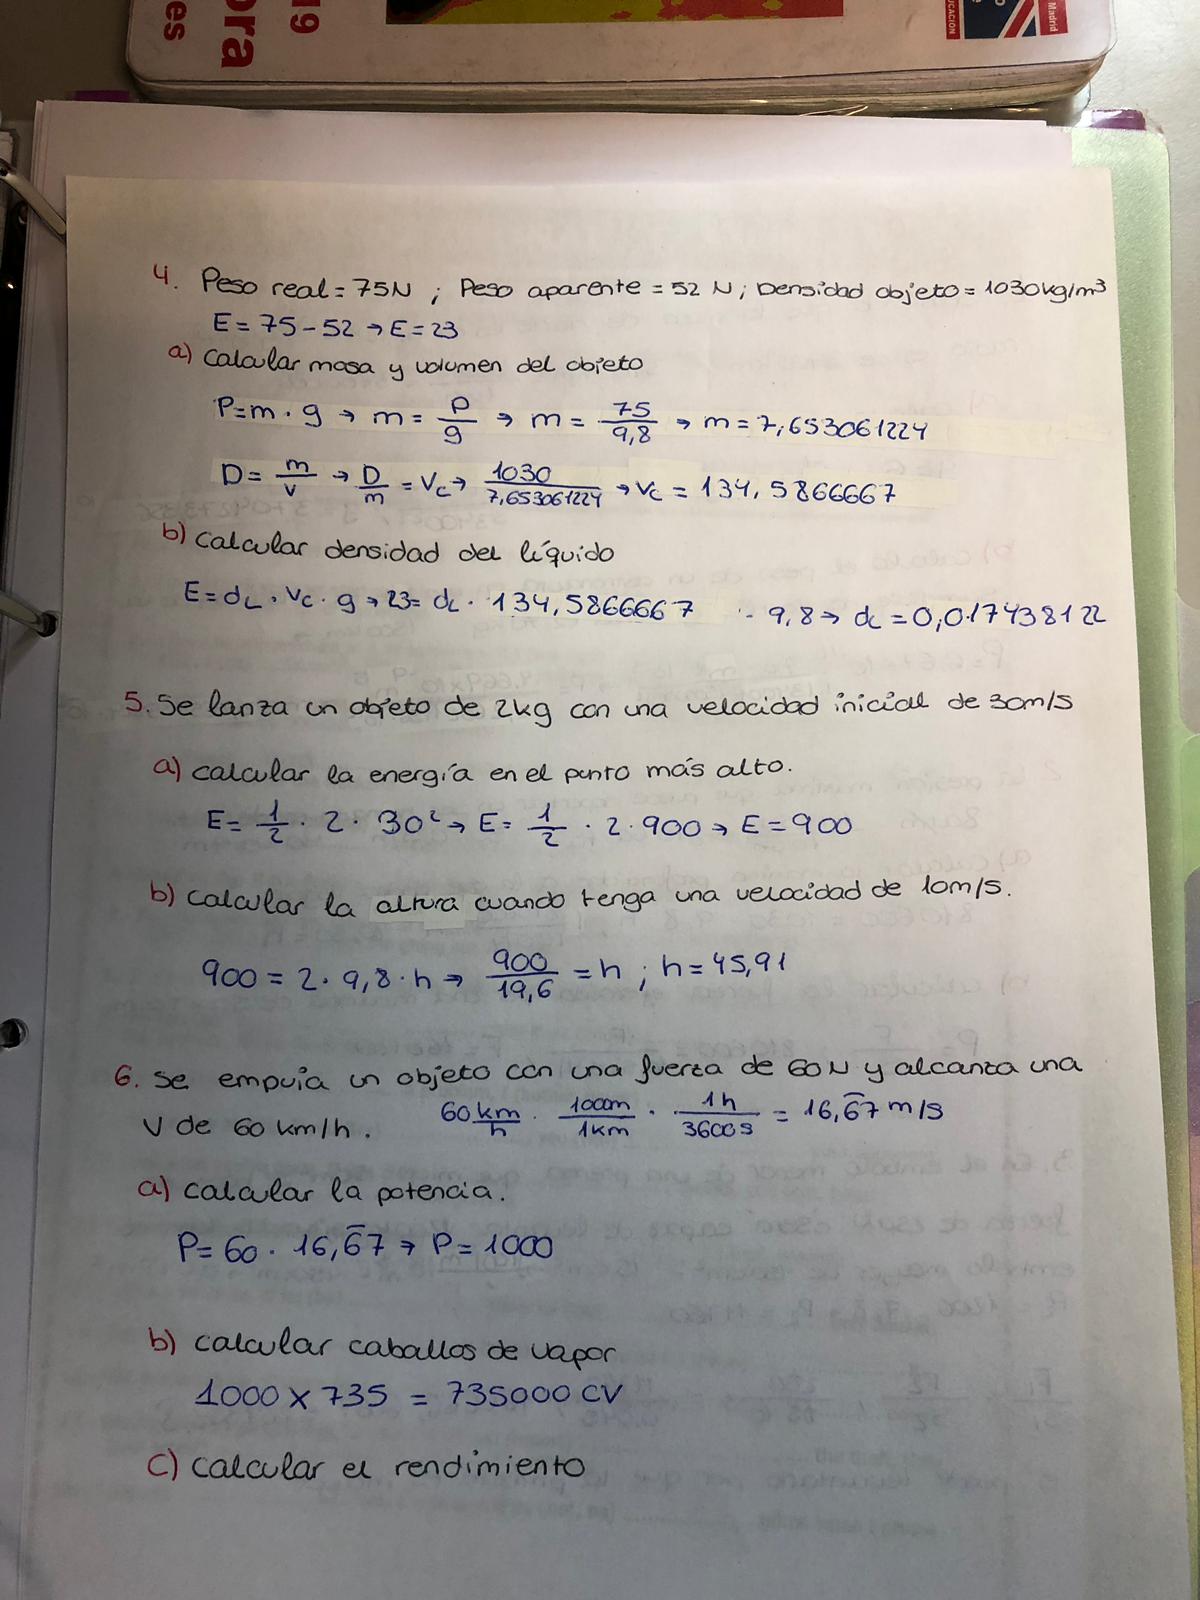 19
ora
es
Madrid
EDUCACIÓN
4. Peso real = 75N ; Peso aparente = 52 N; Densidad objeto = 1030kg/m³
E = 75 - 52 → E = 23
a) calcular masa y volumen del objeto
P = m · g → m = P/g → m = 75/9,8 → m = 7,653061224
D = m/v → D/m = Vc → 1030/7,653061224 → Vc = 134,5866667
b) calcular densidad del líquido
E = dL · Vc · g → 23 = dL · 134,5866667 · 9,8 → dL = 0,017438122
5. Se lanza un objeto de 2kg con una velocidad inicial de 30m/s
a) calcular la energía en el punto más alto.
E = 1/2 · 2 · 30² → E = 1/2 · 2 · 900 → E = 900
b) calcular la altura cuando tenga una velocidad de 10m/s.
900 = 2 · 9,8 · h → 900/19,6 = h ; h = 45,91
6. Se empuja un objeto con una fuerza de 60N y alcanza una
V de 60 km/h. 60 km/h · 1000m/1km · 1h/3600s = 16,6̅7 m/s
a) calcular la potencia.
P = 60 · 16,6̅7 → P = 1000
b) calcular caballos de vapor
1000 x 735 = 735000 CV
c) calcular el rendimiento